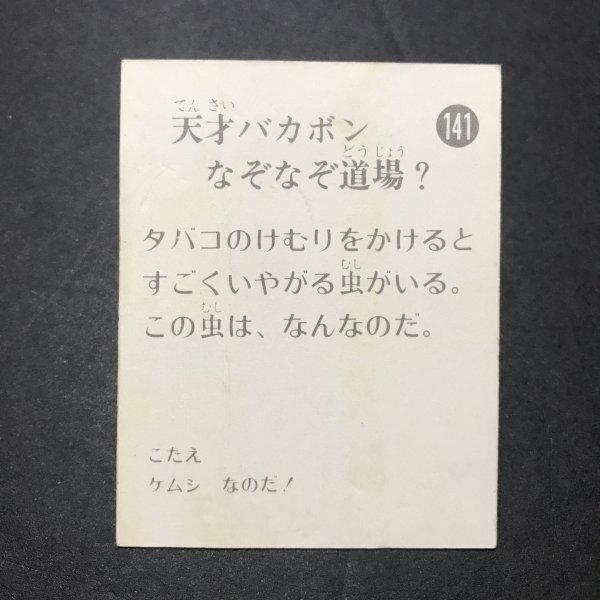 天才バカボン
てんさい
141
なぞなぞ道場？
どうじょう
タバコのけむりをかけると
すごくいやがる虫がいる。
むし
この虫は、なんなのだ。
むし
こたえ
ケムシ なのだ！